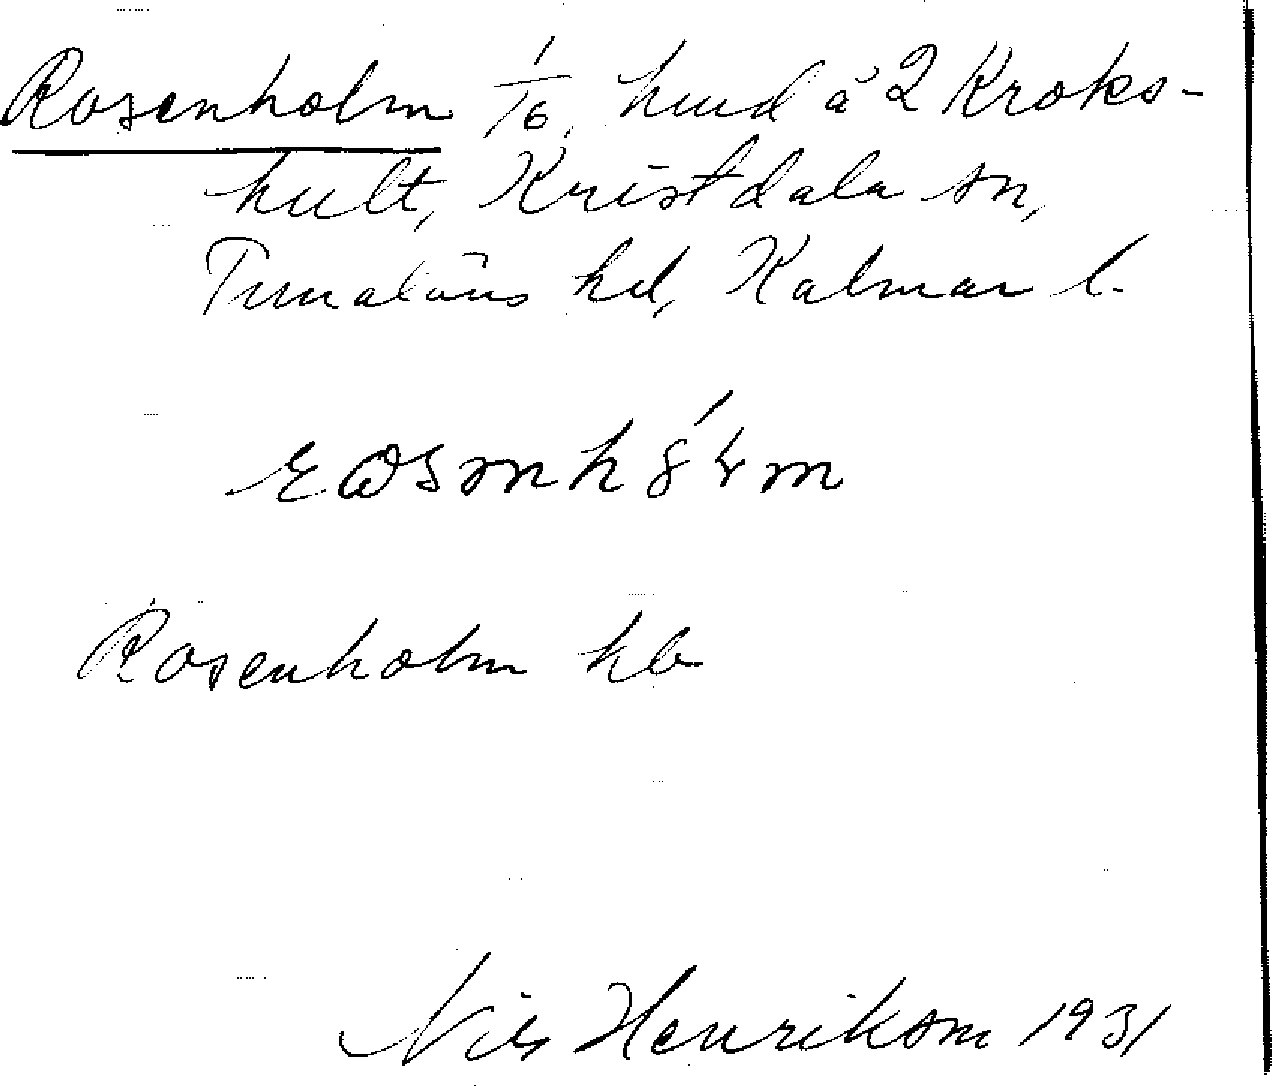 Rosenholm 1/16, hmd å 2 Kroks-
hult, Kristdala sn,
Tunaläns hd, Kalmar l.
Rosenholm hb
Nils Henrikson 1931